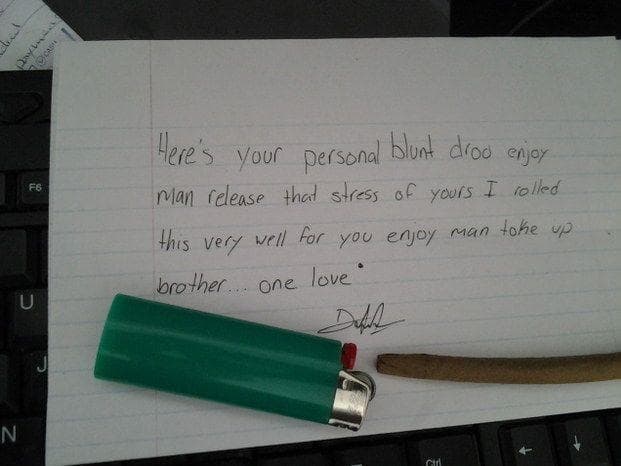 Here's your personal blunt droo enjoy
man release that stress of yours I rolled
this very well for you enjoy man toke up
brother... one love
F6
U
J
N
Ctrl